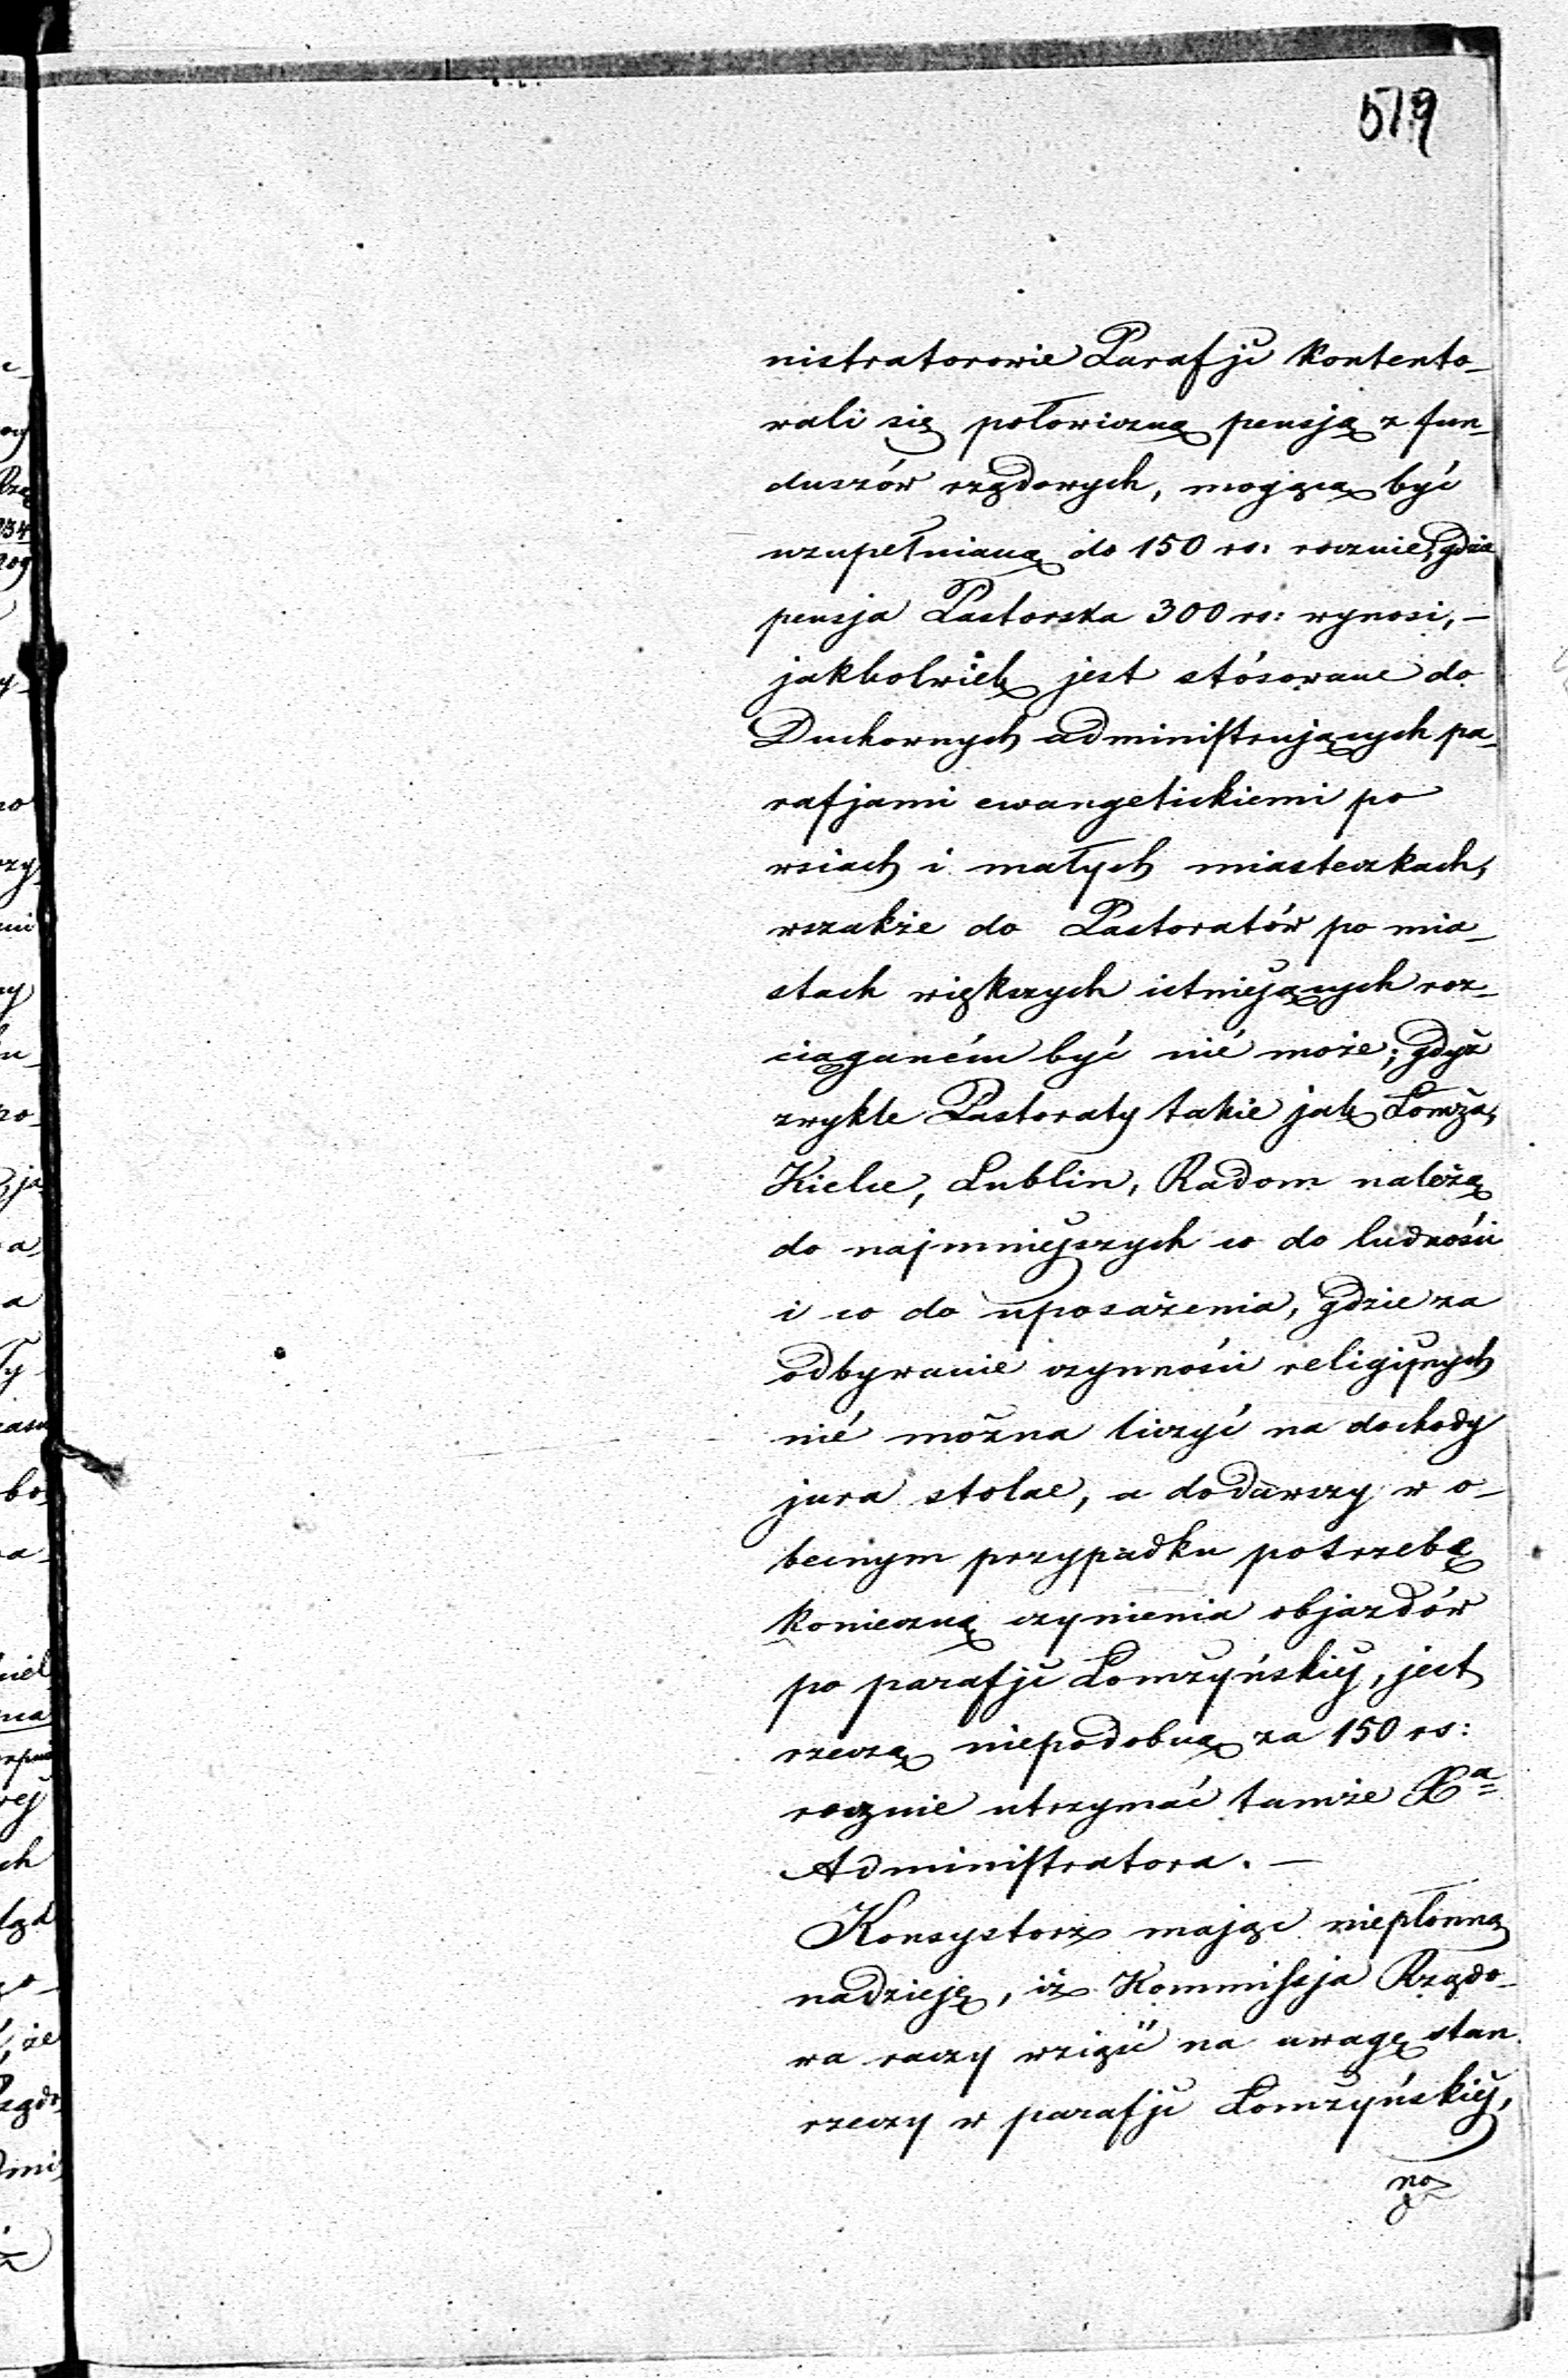 519
nistratorowie Parafji kontento_
wali się połowiczną pensją z fun_
duszów rządowych, mogącą być
uzupełnianą do 150 rs: rocznie, gdzie
pensja Pastorska 300 rs: wynosi, —
jakkolwiek jest stósowane do
Duchownych administrujących pa_
rafjami ewangelickiemi po
wsiach i małych miasteczkach,
wszakże do Pastoratów po mia_
stach większych istniejących roz_
ciąganém być nié może; gdyż
zwykle Pastoraty takie jak Łomża,
Kielce, Lublin, Radom należą
do najmniejszych co do ludności
i co do uposażenia, gdzie za
odbywanie czynności religijnych
nié można liczyć na dochody
jura stolae, a dodawszy w o_
becnym przypadku potrzebę
konieczną czynienia objazdów
po parafji Łomżyńskiéj, jest
rzeczą niepodobną za 150 rs:
rocznie utrzymać tamże Xa
Administratora. —
Konsystorz mając niepłonną
nadzieję, iż Kommissja Rządo_
wa raczy wziąść na uwagę stan
rzeczy w parafji Łomżyńskiéj,